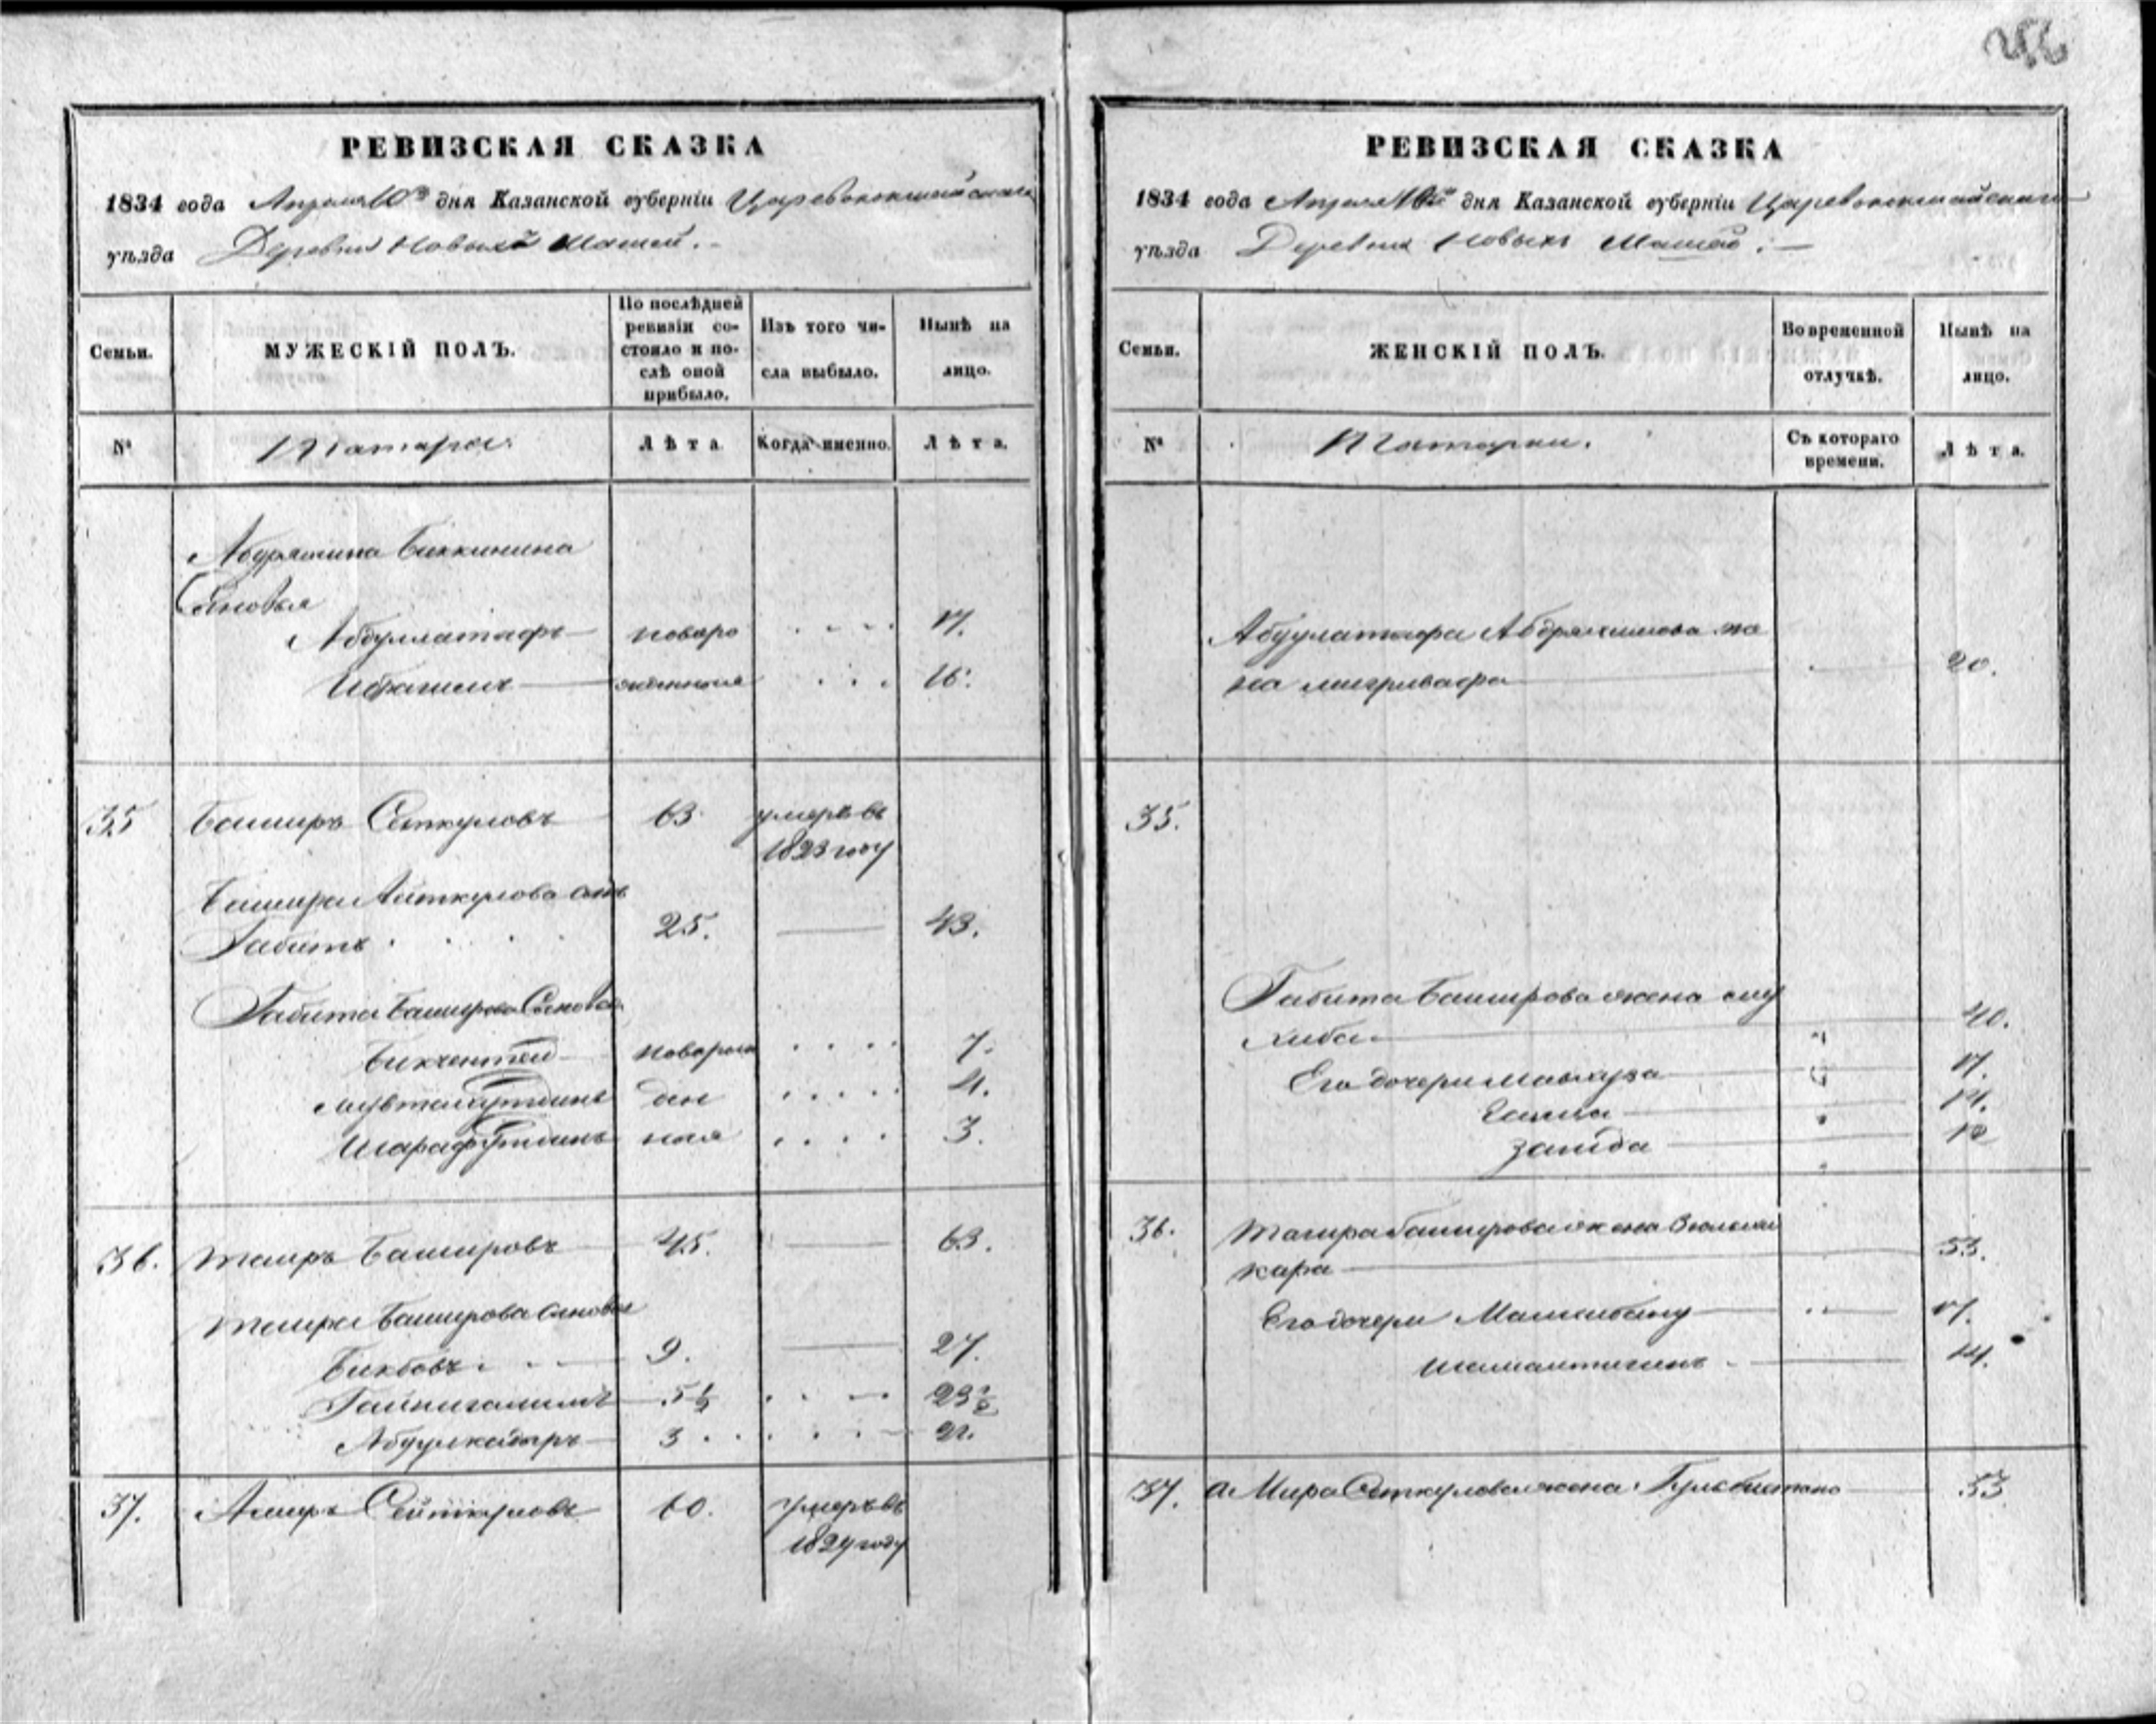 РЕВИЗСКАЯ СКАЗКА
1834 года Апреля 10го дня Казанской губерніи Царевококшайскаго
уѣзда Деревни Новыхъ
Семьи.
МУЖЕСКІЙ ПОЛЪ.
По послѣдней ревизіи состояло и послѣ оной прибыло.
Изъ того числа выбыло.
Нынѣ на лицо.
№
Татары.
Лѣта.
Когда именно.
Лѣта.
Абдряшита Биккинина
Сыновья
Абдуллатафъ новоро 17.
Ибрагимъ жденные 16.
35 Баширъ Сеткуловъ 63 умеръ въ
1823 году
Башира Аиткулова сынъ
Габитъ 25. 43.
Габита Баширова Сыновья
Бикчентей новорож 7.
ден 4.
Шарафутдинъ ныя 3.
36. Таиръ Башировъ 45. 63.
Таира Баширова сыновья
Бикбовъ 9. 27.
5½ 23½
Абдулкадыръ 3 21.
37. Амиръ Сейткуловъ 60. умеръ въ
1824 году
РЕВИЗСКАЯ СКАЗКА
1834 года Апреля 10го дня Казанской губерніи Царевококшайскаго
уѣзда Деревни Новыхъ
Семьи.
ЖЕНСКІЙ ПОЛЪ.
Во временной отлучкѣ.
Нынѣ на лицо.
№
Татарки.
Съ котораго времени.
Лѣта.
Абдулатафа Абдряшитова же
на 20.
35.
Габита Баширова жена
хиба 40.
Его дочери 17.
14.
Заида 12
36. Таира Баширова жена Зюльки
кара 53.
Его дочери 17.
14.
37. аМира Сеткулова жена Гульбистана 53